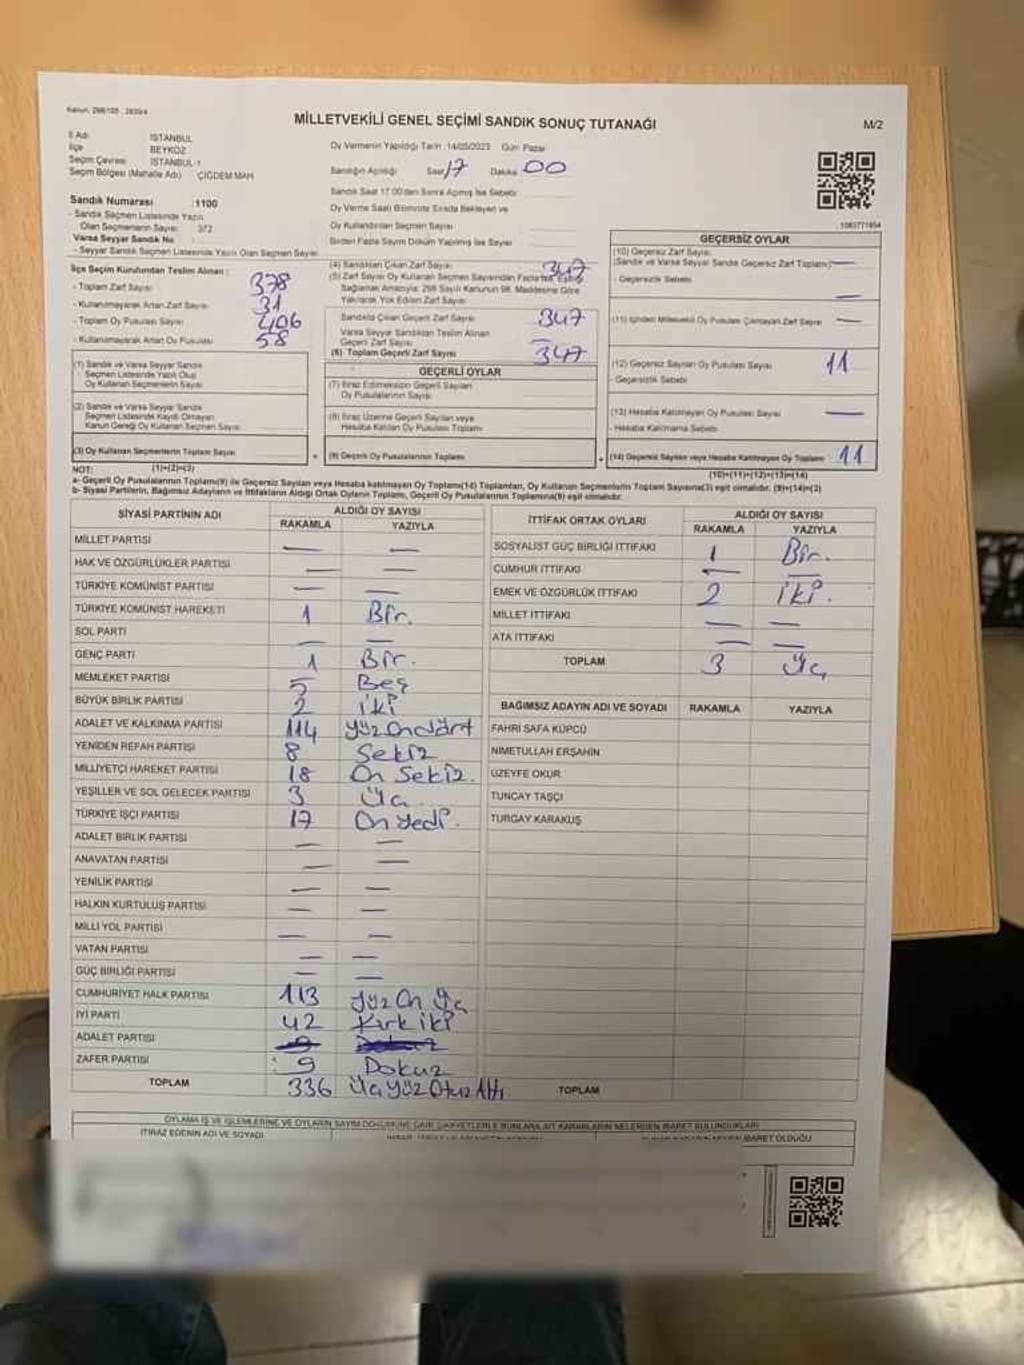 MİLLETVEKİLİ GENEL SEÇİMİ SANDIK SONUÇ TUTANAĞI
M/2
İl Adı İSTANBUL
İlçe BEYKOZ
Seçim Çevresi İSTANBUL-1
Seçim Bölgesi (Mahalle Adı) ÇİĞDEM MAH
Oy Vermenin Yapıldığı Tarih :14/05/2023 Gün: Pazar
Sandığın Açıldığı Saat 17 Dakika 00
Sandık Saat 17:00'den Sonra Açılmış İse Sebebi
Oy Verme Saati Bitiminde Sırada Bekleyen ve
Oy Kullandırılan Seçmen Sayısı
Birden Fazla Sayım Döküm Yapılmış İse Sayısı
Sandık Numarası :1100
- Sandık Seçmen Listesinde Yazılı
Olan Seçmenlerin Sayısı 372
Varsa Seyyar Sandık No
- Seyyar Sandık Seçmen Listesinde Yazılı Olan Seçmen Sayısı
İlçe Seçim Kurulundan Teslim Alınan :
- Toplam Zarf Sayısı 378
- Kullanılmayarak Artan Zarf Sayısı 31
- Toplam Oy Pusulası Sayısı 406
- Kullanılmayarak Artan Oy Pusulası 58
(1) Sandık ve Varsa Seyyar Sandık
Seçmen Listesinde Yazılı Olup
Oy Kullanan Seçmenlerin Sayısı
(2) Sandık ve Varsa Seyyar Sandık
Seçmen Listesinde Kayıtlı Olmayan
Kanun Gereği Oy Kullanan Seçmen Sayısı
(3) Oy Kullanan Seçmenlerin Toplam Sayısı
(1)+(2)=(3)
(4) Sandıktan Çıkan Zarf Sayısı 347
(5) Zarf Sayısı Oy Kullanan Seçmen Sayısından Fazla İse Eşitliği
Sağlamak Amacıyla; 298 Sayılı Kanunun 98. Maddesine Göre
Yakılarak Yok Edilen Zarf Sayısı
Sandıkta Çıkan Geçerli Zarf Sayısı 347
Varsa Seyyar Sandıktan Teslim Alınan
Geçerli Zarf Sayısı
(6) Toplam Geçerli Zarf Sayısı 347
GEÇERLİ OYLAR
(7) İtiraz Edilmeksizin Geçerli Sayılan
Oy Pusulalarının Sayısı
(8) İtiraz Üzerine Geçerli Sayılan veya
Hesaba Katılan Oy Pusulası Toplamı
(9) Geçerli Oy Pusulalarının Toplamı
GEÇERSİZ OYLAR
(10) Geçersiz Zarf Sayısı
(Sandık ve Varsa Seyyar Sandık Geçersiz Zarf Toplamı) —
- Geçersizlik Sebebi —
(11) İçinden Milletvekili Oy Pusulası Çıkmayan Zarf Sayısı —
(12) Geçersiz Sayılan Oy Pusulası Sayısı 11
- Geçersizlik Sebebi
(13) Hesaba Katılmayan Oy Pusulası Sayısı —
- Hesaba Katılmama Sebebi
(14) Geçersiz Sayılan veya Hesaba Katılmayan Oy Toplamı 11
(10)+(11)+(12)+(13)=(14)
NOT:
a- Geçerli Oy Pusulalarının Toplamı(9) ile Geçersiz Sayılan veya Hesaba katılmayan Oy Toplamı(14) Toplamları, Oy Kullanan Seçmenlerin Toplam Sayısına(3) eşit olmalıdır.
b- Siyasi Partilerin, Bağımsız Adayların ve İttifakların Aldığı Ortak Oyların Toplamı, Geçerli Oy Pusulalarının Toplamına(9) eşit olmalıdır.
SİYASİ PARTİNİN ADI ALDIĞI OY SAYISI
RAKAMLA YAZIYLA
MİLLET PARTİSİ — —
HAK VE ÖZGÜRLÜKLER PARTİSİ — —
TÜRKİYE KOMÜNİST PARTİSİ — —
TÜRKİYE KOMÜNİST HAREKETİ 1 Bir.
SOL PARTİ — —
GENÇ PARTİ 1 Bir.
MEMLEKET PARTİSİ 5 Beş
BÜYÜK BİRLİK PARTİSİ 2 iki
ADALET VE KALKINMA PARTİSİ 114 yüz Ondört
YENİDEN REFAH PARTİSİ 8 Sekiz
MİLLİYETÇİ HAREKET PARTİSİ 18 On Sekiz.
YEŞİLLER VE SOL GELECEK PARTİSİ 3 Üç
TÜRKİYE İŞÇİ PARTİSİ 17 On yedi.
ADALET BİRLİK PARTİSİ — —
ANAVATAN PARTİSİ — —
YENİLİK PARTİSİ — —
HALKIN KURTULUŞ PARTİSİ — —
MİLLİ YOL PARTİSİ — —
VATAN PARTİSİ — —
GÜÇ BİRLİĞİ PARTİSİ — —
CUMHURİYET HALK PARTİSİ 113 yüz On Üç
İYİ PARTİ 42 Kırk iki
ADALET PARTİSİ
ZAFER PARTİSİ 9 Dokuz
TOPLAM 336 Üç yüz Otuz Altı
İTTİFAK ORTAK OYLARI ALDIĞI OY SAYISI
RAKAMLA YAZIYLA
SOSYALİST GÜÇ BİRLİĞİ İTTİFAKI 1 Bir.
CUMHUR İTTİFAKI — —
EMEK VE ÖZGÜRLÜK İTTİFAKI 2 iki.
MİLLET İTTİFAKI — —
ATA İTTİFAKI — —
TOPLAM 3 Üç
BAĞIMSIZ ADAYIN ADI VE SOYADI RAKAMLA YAZIYLA
FAHRİ SAFA KÜPCÜ
NİMETULLAH ERŞAHİN
ÜZEYFE OKUR
TUNCAY TAŞÇI
TURGAY KARAKUŞ
TOPLAM
İTİRAZ EDENİN ADI VE SOYADI